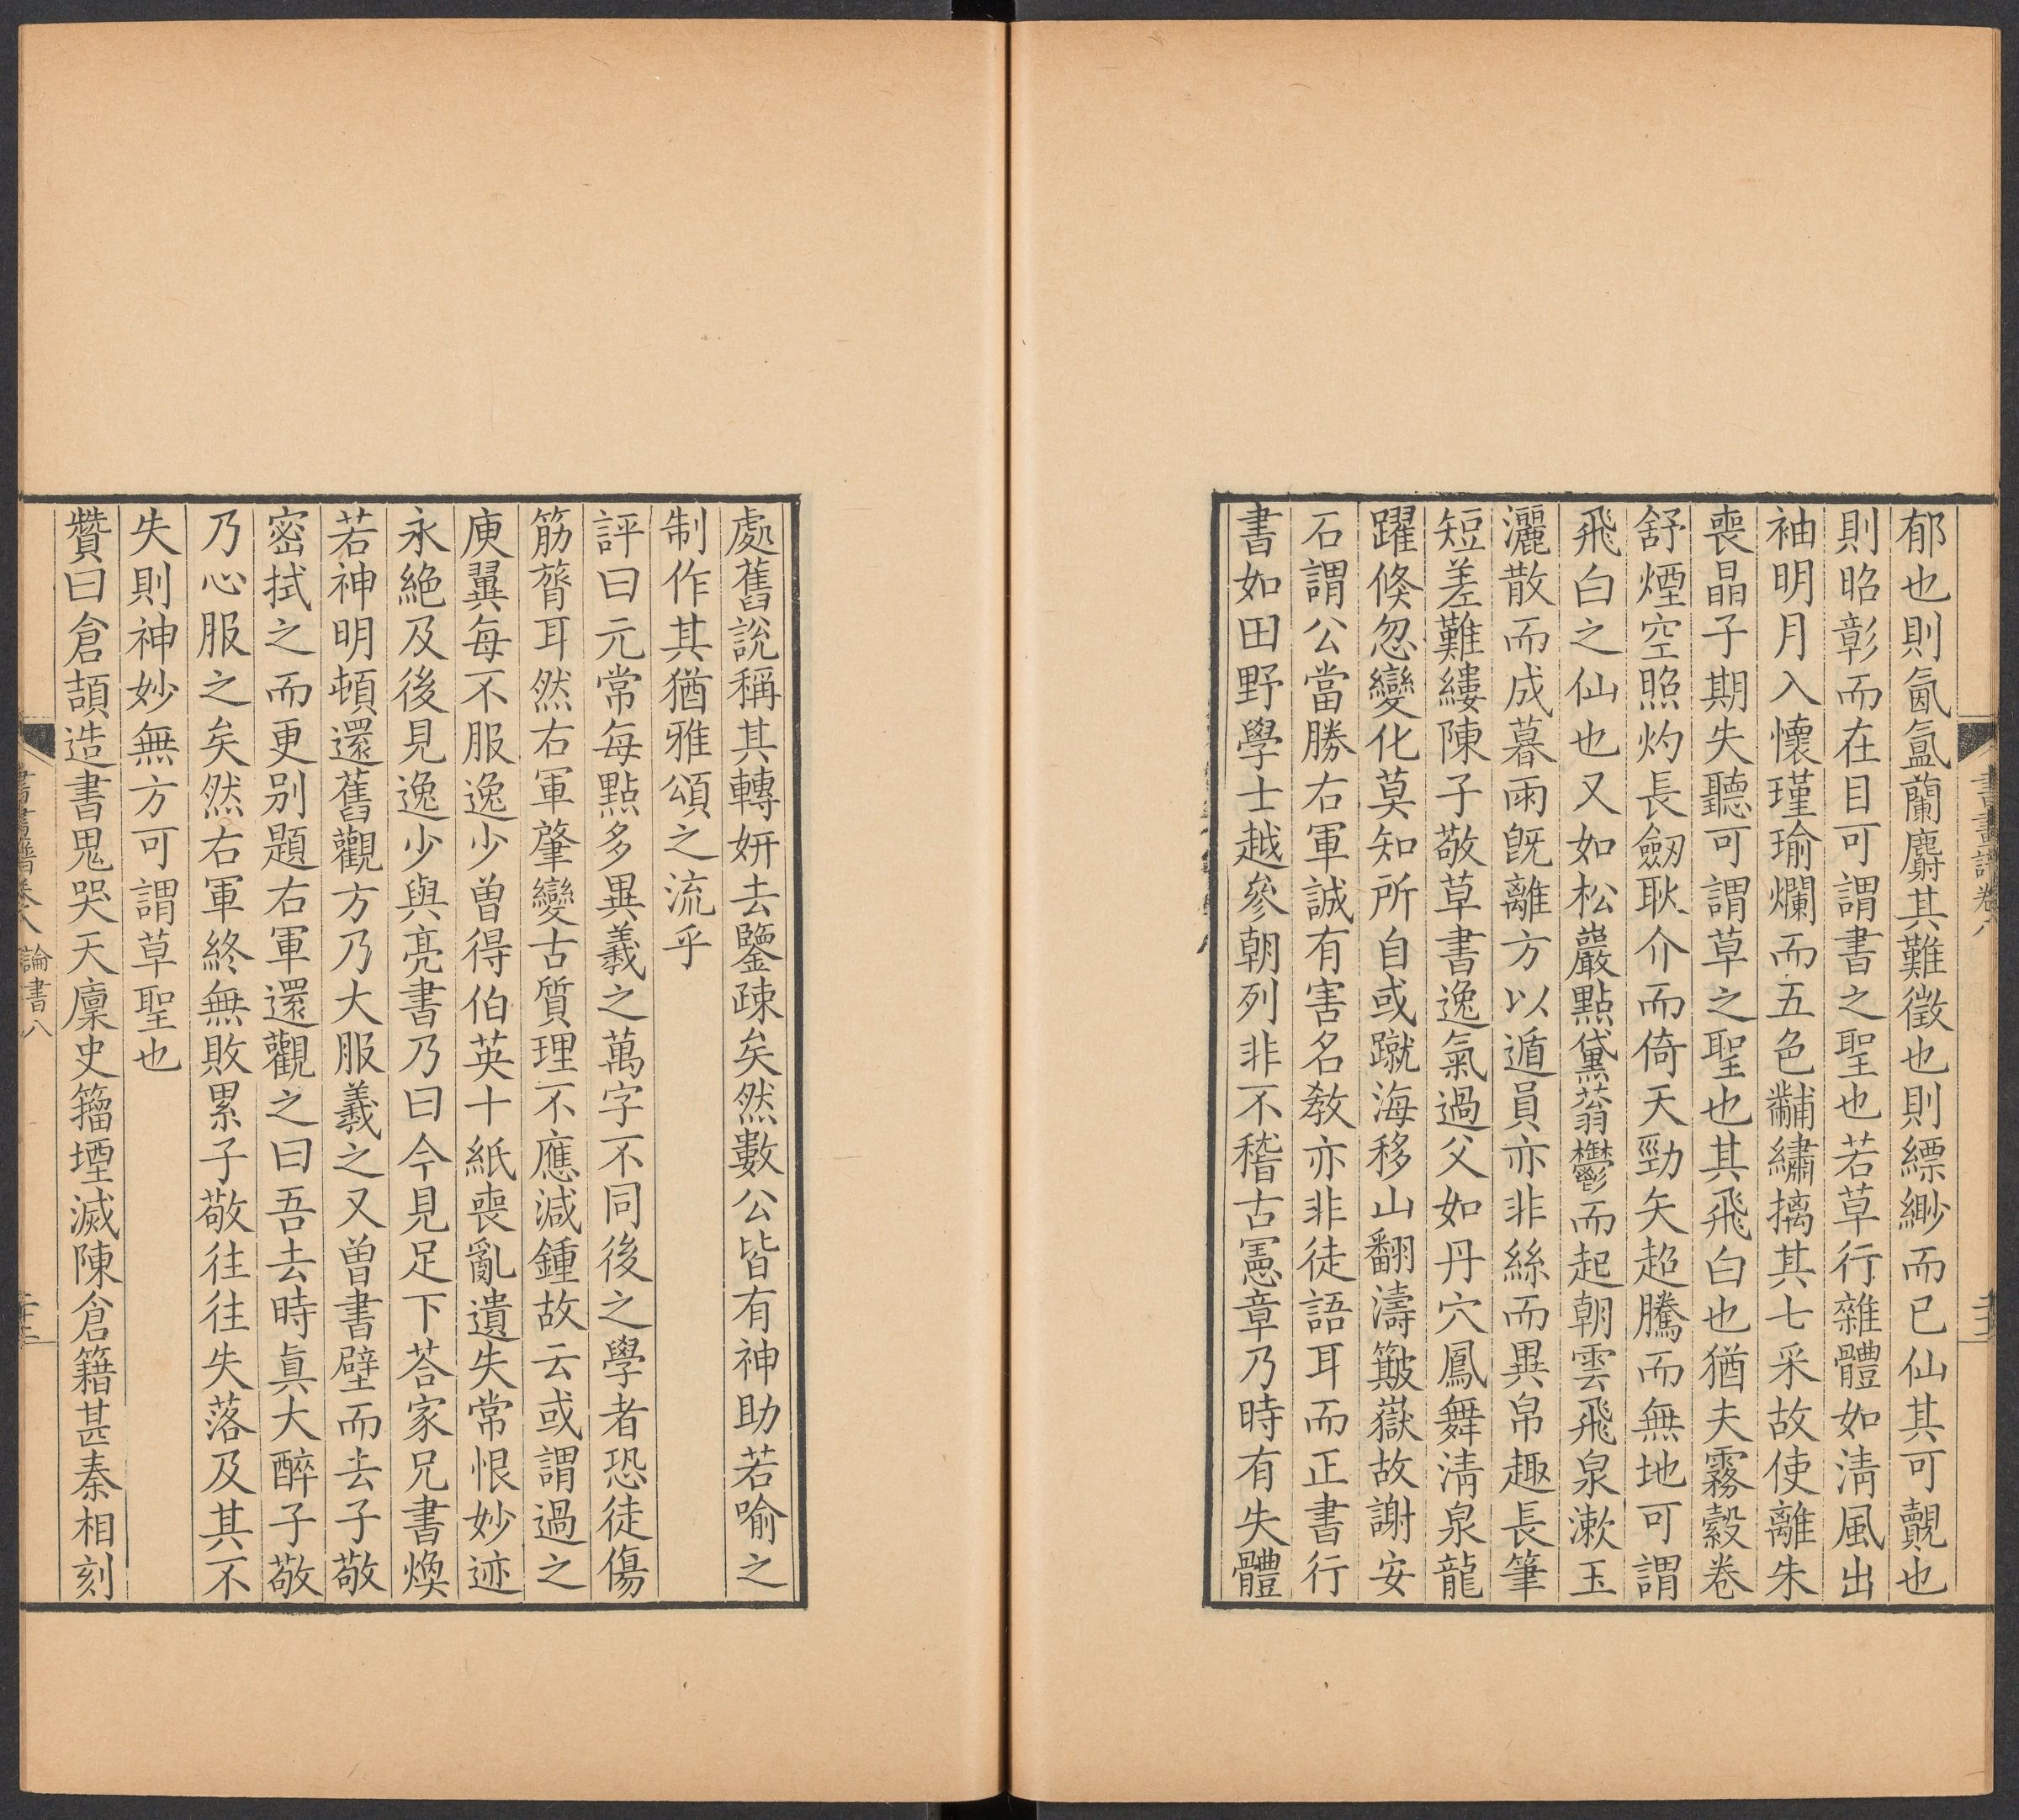 郁也則氤氳蘭麝其難徵也則縹緲而已仙其可覿也
則昭彰而在目可謂書之聖也若草行雜體如淸風出
袖明月入懷瑾瑜爛而五色黼繡摛其七采故使離朱
喪晶子期失聽可謂草之聖也其飛白也猶夫霧縠卷
舒煙空照灼長劒耿介而倚天勁矢超騰而無地可謂
飛白之仙也又如松巖點黛蓊鬱而起朝雲飛泉漱玉
灑散而成暮雨旣離方以遁員亦非絲而異帛趣長筆
短差難縷陳子敬草書逸氣過父如丹穴鳳舞淸泉龍
躍倏忽變化莫知所自或蹴海移山翻濤簸嶽故謝安
石謂公當勝右軍誠有害名敎亦非徒語耳而正書行
書如田野學士越參朝列非不稽古憲章乃時有失體
處舊說稱其轉姸去鑒疎矣然數公皆有神助若喻之
制作其猶雅頌之流乎
評曰元常每點多異羲之萬字不同後之學者恐徒傷
筋膂耳然右軍肇變古質理不應減鍾故云或謂過之
庾翼每不服逸少曾得伯英十紙喪亂遺失常恨妙迹
永絕及後見逸少與亮書乃曰今見足下荅家兄書煥
若神明頓還舊觀方乃大服羲之又曾書壁而去子敬
密拭之而更别題右軍還觀之曰吾去時眞大醉子敬
乃心服之矣然右軍終無敗累子敬往往失落及其不
失則神妙無方可謂草聖也
贊曰倉頡造書鬼哭天廩史籀堙滅陳倉籍甚秦相刻
書畫譜卷八 論書八